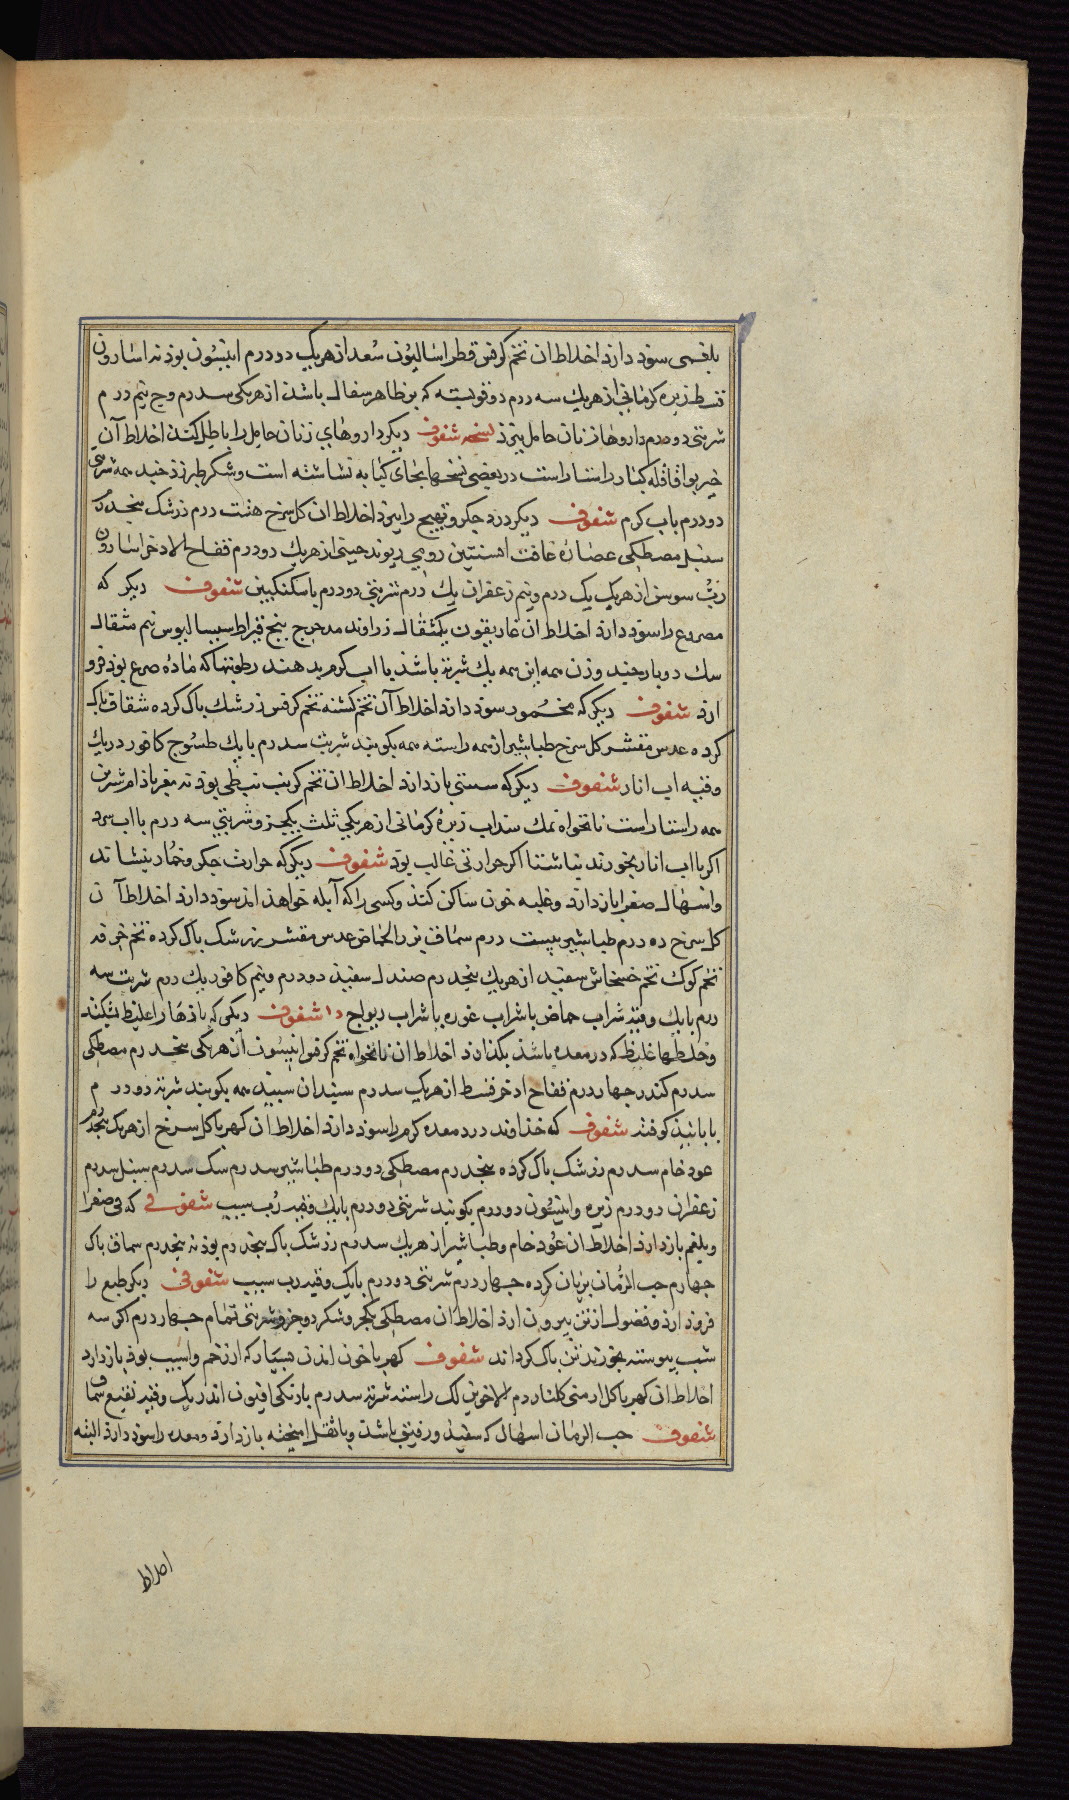 بلغمی سوذ دارذ اخلاط ان تخم کرفس قطراسالیون سعد از هریک دو درم انیسون بوذنه اسارون
قسط زیره کرمانی از هریک سه درم دوقو بسته که بر ظاهر سفال باشذ از هریکی سدرم وج نیم درم
شربتی دو درم داروها زنان حامل ببرذ نسخه شفوف دیکر داروهای زنان حامل را باطل کنذ اخلاط آن
خیربوا قاقله کبار راستاراست در بعضی نسخها بجای کبابه نشاشته است و شکر طبرزذ جند همه شربتی
دو درم باب کرم شفوف دیکر درد جکر و تهیج را ببرذ اخلاط ان کل سرخ هشت درم زرشک بنجدرم
سنبل مصطکی عصاره غافت افسنتین رومی ریوند جینی از هریک دو درم فقاح الاذخر اسارون
رب سوسن از هریک یک درم و نیم زعفران یک درم شربتی دو درم با سکنکبین شفوف دیکر که
مصروع را سوذ دارذ اخلاط ان غاریقون یکمثقال زراوند مدحرج بنج قیراط سیسالیوس نیم مثقال
سک دوبار جند وزن همه این همه یک شربت باشذ با اب کرم بدهند رطوبتها که ماده صرع بوذ فرو
ارذ شفوف دیکر که مخمور سوذ دارذ اخلاط آن تخم کشنه تخم کرفس زرشک باک کرده شقاق باک
کرده عدس مقشر کل سرخ طباشیر از همه راسته همه بکوبند شربت سدرم با یک طسوج کافور در یک
وقیه اب انار شفوف دیکر که مستی بازدارذ اخلاط ان تخم کرنب نبطی بوذنه مغز باذام شیرین
همه راستاراست نانخواه نمک سنداب زیره کرمانی از هریکی ثلث یکجزو شربتی سه درم با اب سرد
اکر با اب انار بخورند ناشتا اکر حرارتی غالب بوذ شفوف دیکر که حرارت جکر و خمار بنشاند
واسهال صفرا بازدارد و غلبه خون ساکن کند و کسی را که آبله خواهذ امذ سوذ دارذ اخلاط آن
کل سرخ ده درم طباشیر بیست درم سماق بزرالحماض عدس مقشر زرشک باک کرده تخم خرفه
تخم کوک تخم خشخاش سفید از هریک بنجدرم صندل سفیذ دو درم و نیم کافور یک درم شربت سه
درم با یک وقیه شراب حماض با شراب غوره با شراب ریواج دا شفوف دیکر که باذها را غلیظ بشکند
وخلطها غلیظ که در معده باشذ بکذارذ اخلاط ان نانخواه تخم کرفس انیسون از هریکی بنجدرم مصطکی
سدرم کندر جهار درم فقاح اذخر قسط از هریک سدرم سپندان سبید همه بکوبند شربت دو درم
با با نبیذ کوفته شفوف که خذاوند درد معده کرم را سوذ دارذ اخلاط ان کهربا کل سرخ از هریک بنجدرم
عود خام سدرم زرشک باک کرده بنجدرم مصطکی دو درم طباشیر سدرم سک سدرم سنبل سدرم
زعفران دو درم زیره وانیسون دو درم بکوبند شربتی دو درم با یک وقیه رب سیب شفوفی که قی صفرا
و بلغم بازدارذ اخلاط ان عود خام و طباشیر از هریک سدرم زرشک باک بنجدرم بوذنه بنجدرم سماق باک
جهارم حب الرمان بریان کرده جهار درم شربتی دو درم با یک وقیه رب سیب شفوفی دیکر طبع را
فروذ ارذ و فضول از تن بیرون ارذ اخلاط ان مصطکی یکجزو شکر دو جزو شربتی تمام جهار درم اکر سه
شب بیوسته بخورند تن باک کرداند شفوف کهربا خون امذن بسیار که از زخم و اسیب بوذ بازدارد
اخلاط ان کهربا کل ارمنی کلنار دم الاخوین لک راسته شربت سدرم با دنکی افیون اندر یک وقیه نقیع سماق
شفوف حب الرمان اسهال که سفیذ و رقیق باشذ و با ثقل امیخته بازدارد و معده را سوذ دارذ البته
اخلاط